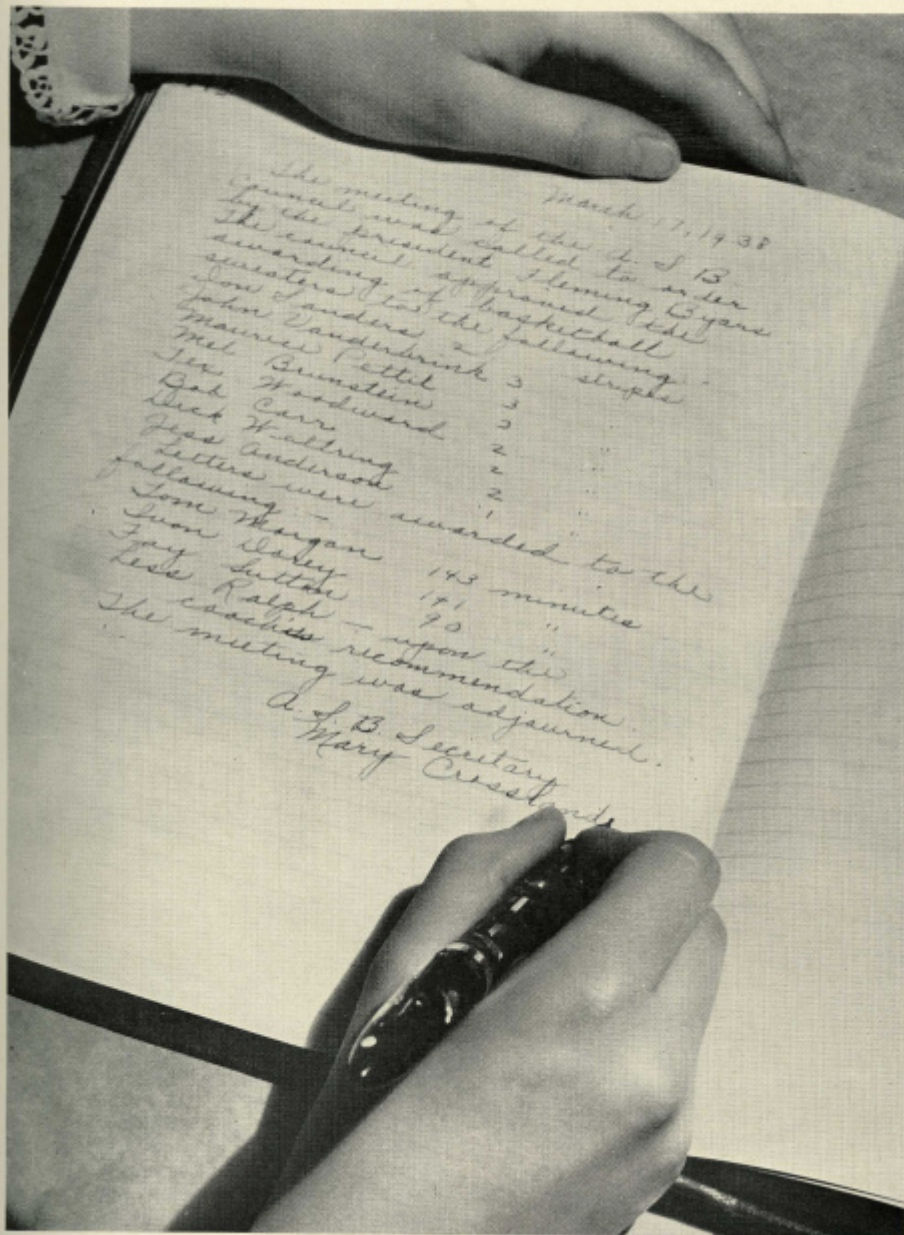 March 17, 1938
The meeting of the A. S B
Council was called to order
by the president Fleming Byars
The council approved the
awarding of basketball
sweaters to the following -
Don Sanders 2 stripes
John Vanderbrink 3
Maurice Pettit 3
Mel Brunstein 2
Tex Woodward 2 "
Bob Carr 2 "
Dick Waltring 2 "
Jess Anderson 1 "
Letters were awarded to the
following -
Tom Morgan 143 minutes
Ivon Dorey 141 "
Fay Sutton 90 "
Less Ralph - upon the
coaches recommendation
The meeting was adjourned.
A. S. B. Secretary
Mary Crosslands